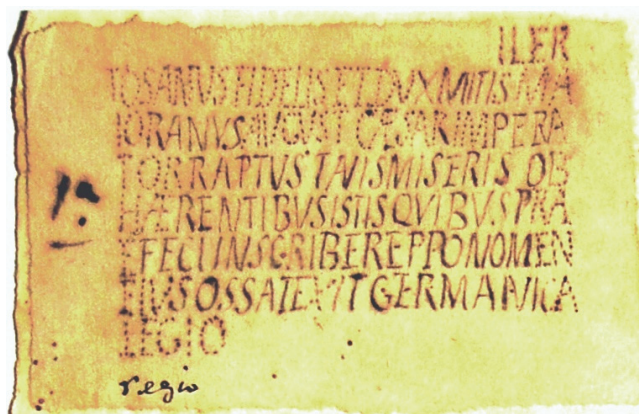 ILER
IOSANVS FIDELIS ET DVX MITIS MA
IORANVS AVGVST CESAR IMPERA
TOR RAPTVS TAVIS MISERIS OB
HÆRENTIBVS ISTIS QVIBVS PRA
INSCRIBERE PPO NOMEN
EIVS OSSA TEXIT GERMANICA
LEGIO
regio